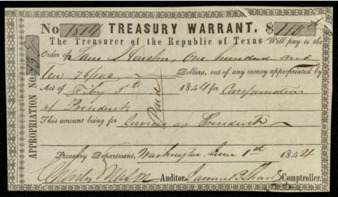 No 1514 TREASURY WARRANT. $110
The Treasurer of the Republic of Texas Will pay to the
Order of Sam Houston, One hundred and
ten 7/100 Dollars, out of any money appropriated by
Act of Feby 3d 1844 for Compensation
of President
This amount being for Services as President
Treasury Department, Washington June 1st 1844
Charles Mason Auditor. Comptroller.
APPROPRIATION No
Paid